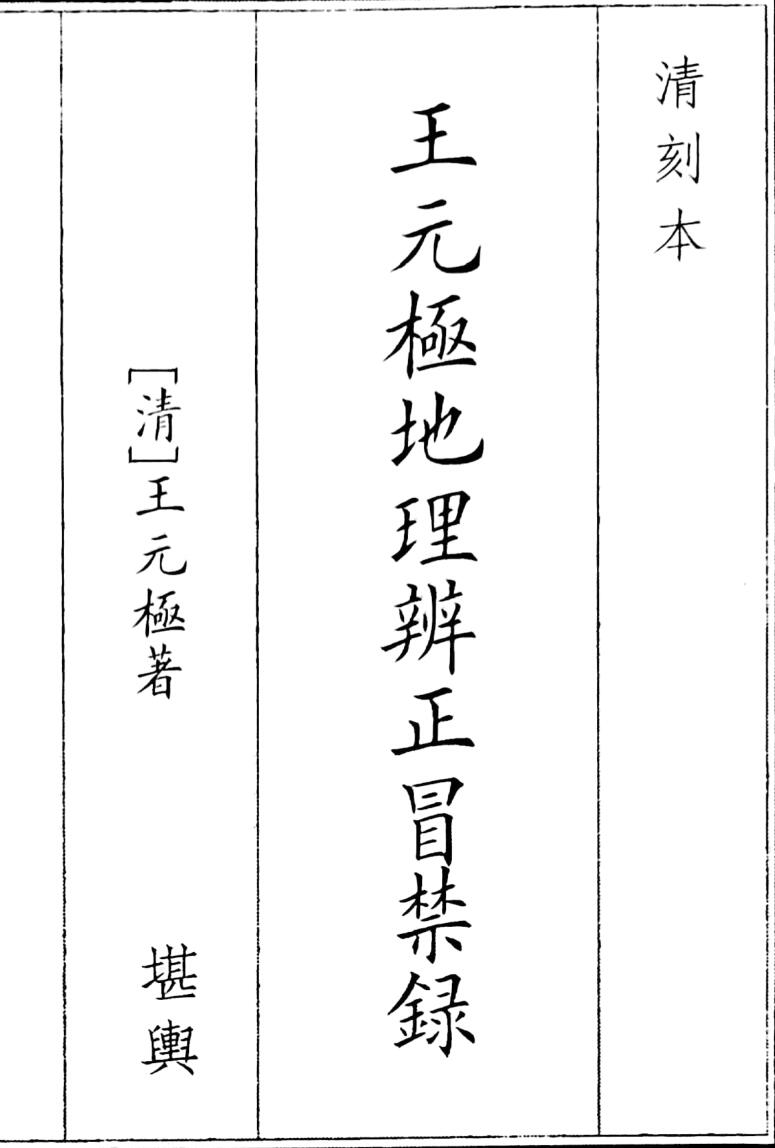 清刻本
王元極地理辨正冒禁録
［清］王元極著
堪輿